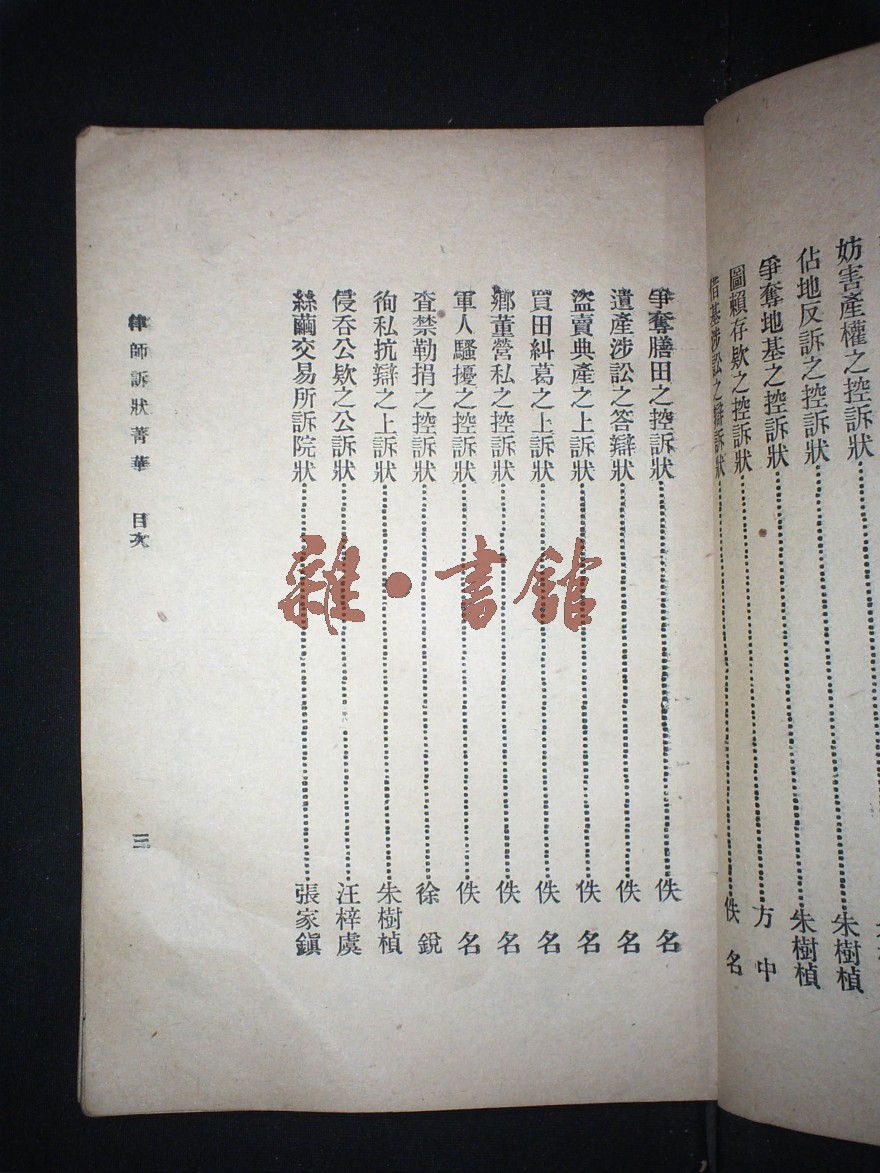 妨害產權之控訴狀 朱樹楨
佔地反訴之控訴狀 朱樹楨
爭奪地基之控訴狀 方中
圖賴存欵之控訴狀
基涉訟之辯訴狀 佚名
爭奪膳田之控訴狀 佚名
遺產涉訟之答辯狀 佚名
盜賣典產之上訴狀 佚名
買田糾葛之上訴狀 佚名
鄉董營私之控訴狀 佚名
軍人騷擾之控訴狀 佚名
查禁勒捐之控訴狀 徐銳
徇私抗辯之上訴狀 朱樹楨
侵吞公欵之公訴狀 汪梓虞
絲繭交易所訴院狀 張家鎭
律師訴狀菁華 目次 三
雜·書館